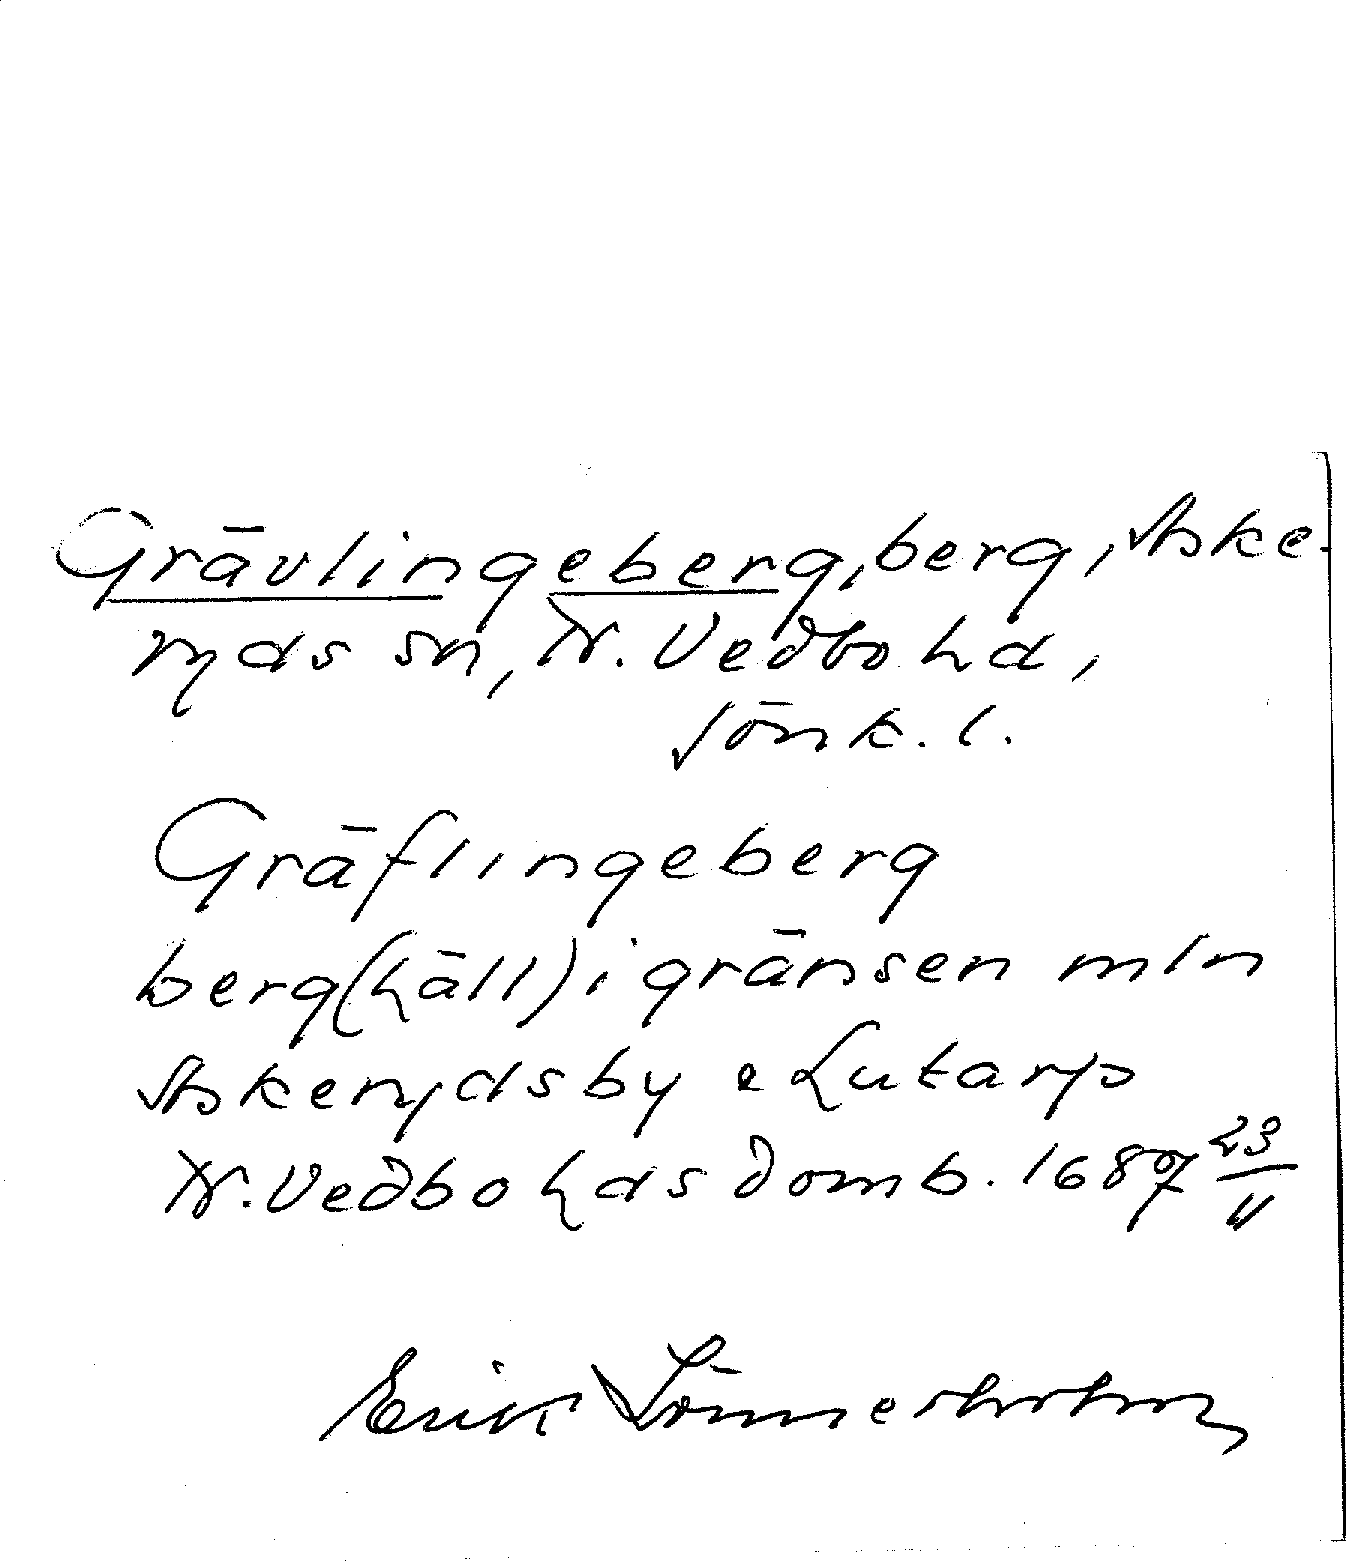 Grävlingeberg, berg, Aske-
ryds sn, N. Vedbo hd,
Jönk. l.
Gräflingeberg
berg(häll) i gränsen mln
Askerydsby o Lutarp
N. Vedbo hds domb. 1687 23/11
Erik Lönnerholm